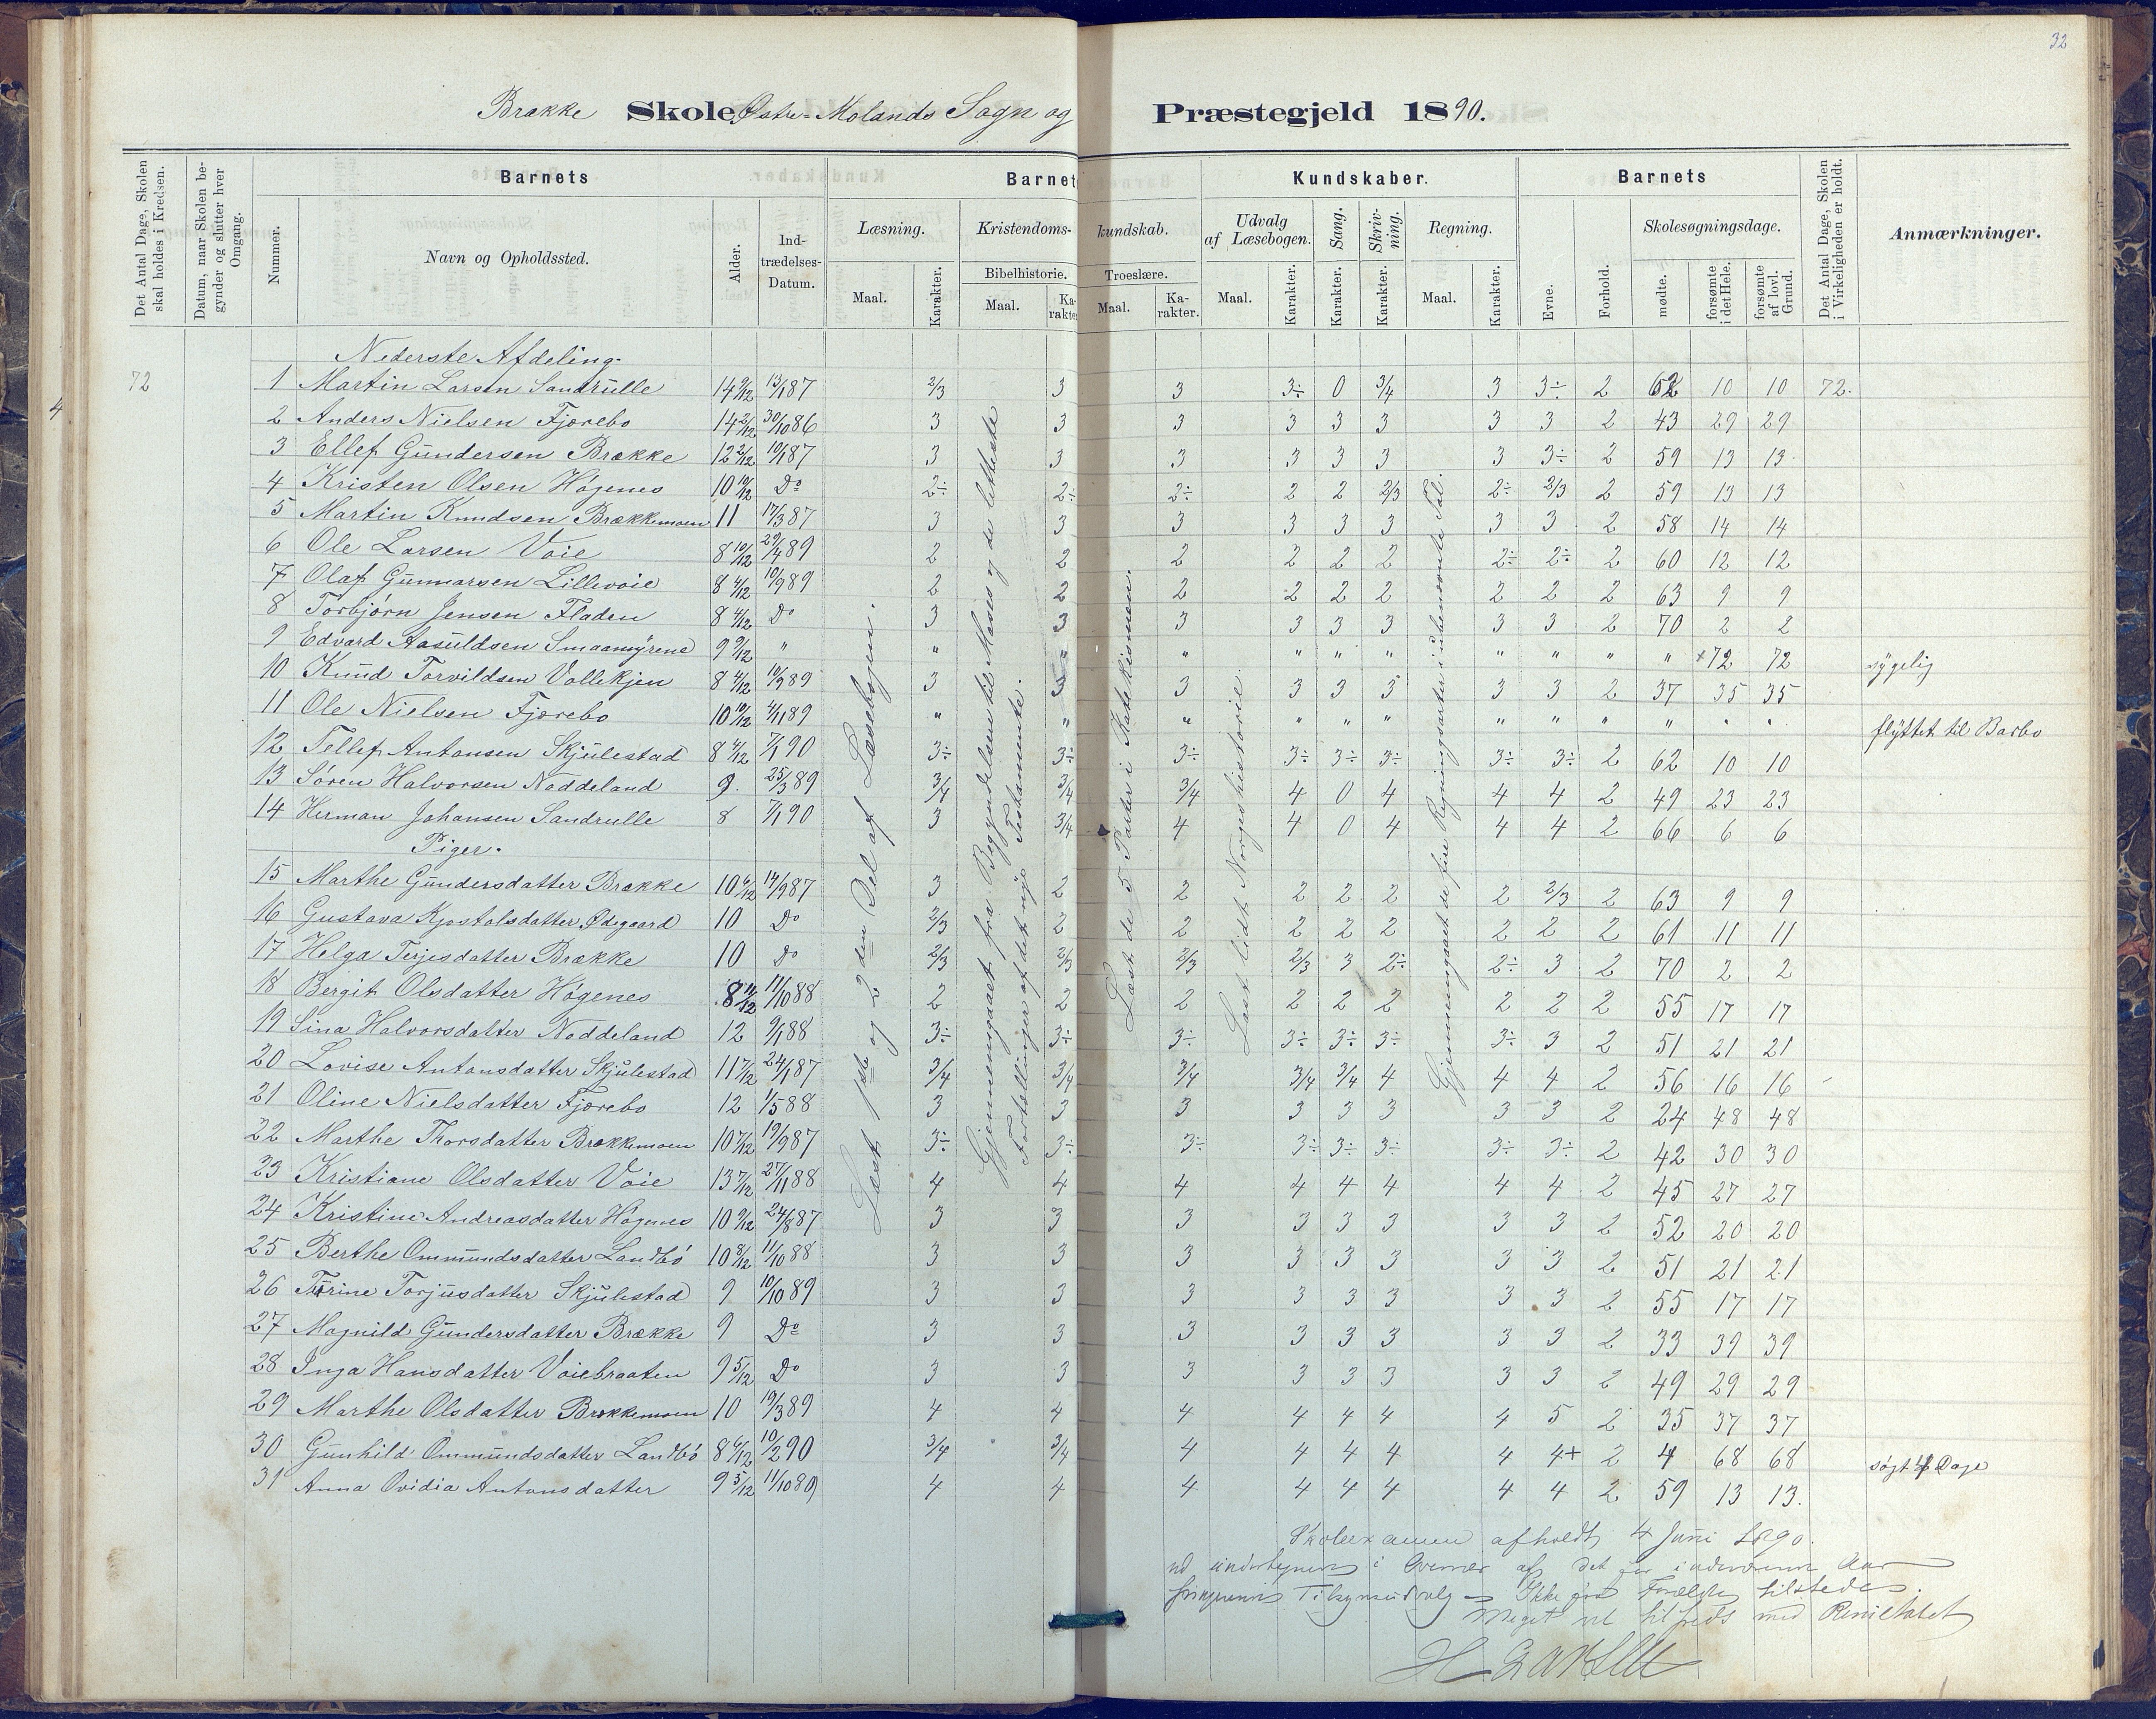 32
Brække Skole Østre-Molands Sogn og Præstegjeld 1890.
Det Antal Dage, Skolen skal holdes i Kredsen.
Datum, naar Skolen begynder og slutter hver Omgang.
Barnets
Nummer.
Navn og Opholdssted.
Alder.
Indtrædelses-Datum.
Barnets Kundskaber.
Læsning.
Maal.
Karakter.
Kristendomskundskab.
Bibelhistorie.
Maal.
Karakter.
Troeslære.
Maal.
Karakter.
Udvalg af Læsebogen.
Maal.
Karakter.
Sang.
Karakter.
Skrivning.
Karakter.
Regning.
Maal.
Karakter.
Barnets
Evne.
Forhold.
Skolesøgningsdage.
mødte.
forsømte i det Hele.
forsømte af lovl. Grund.
Det Antal Dage, Skolen i Virkeligheden er holdt.
Anmærkninger.
Nederste Afdeling.
72 1 Martin Larsen Sandrulle 14 9/12 13/1 87 2/3 3 3 3÷ 0 3/4 3 3÷ 2 62 10 10 72.
2 Anders Nielsen Fjærebo 14 2/12 30/10 86 3 3 3 3 3 3 3 3 2 43 29 29
3 Ellef Gundersen Brække 12 2/12 10/1 87 3 3 3 3 3 3 3 3÷ 2 59 13 13.
4 Kristen Olsen Høgenes 10 10/12 Do 2÷ 2÷ 2÷ 2 2 2/3 2÷ 2/3 2 59 13 13
5 Martin Knudsen Brækkemoen 11 17/3 87 3 3 3 3 3 3 3 3 2 58 14 14
6 Ole Larsen Voie 8 10/12 29/4 89 2 2 2 2 2 2 2÷ 2÷ 2 60 12 12
7 Olaf Gunnarsen Lillevoie 8 4/12 10/9 89 2 2 2 2 2 2 2 2 2 63 9 9
8 Torbjørn Jensen Fladen 8 4/12 Do 3 3 3 3 3 3 3 3 2 70 2 2
9 Edvard Aasuldsen Smaamyrene 9 9/12 " " " " " " " " " " " +72 72 sygelig
10 Knud Torvildsen Vollekjen 8 4/12 10/9 89 3 3 3 3 3 3 3 3 2 37 35 35
11 Ole Nielsen Fjærebo 10 10/12 4/11 89 " " " " " " " " " " " " flyttet til Barbo
12 Tellef Antonsen Skjulestad 8 4/12 7/1 90 3÷ 3÷ 3÷ 3÷ 3÷ 3÷ 3÷ 3÷ 2 62 10 10
13 Søren Halvorsen Noddeland 9. 25/3 89 3/4 3/4 3/4 4 0 4 4 4 2 49 23 23
14 Herman Johansen Sandrulle 8 7/1 90 3 3/4 4 4 0 4 4 4 2 66 6 6
Piger.
15 Marthe Gundersdatter Brække 10 6/12 14/9 87 3 2 2 2 2 2 2 2/3 2 63 9 9
16 Gustava Kjostolsdatter Ødegaard 10 Do 2/3 2 2 2 2 2 2 2 2 61 11 11
17 Helga Terjesdatter Brække 10 Do 2/3 2/3 2/3 2/3 3 2÷ 2÷ 3 2 70 2 2
18 Bergit Olsdatter Høgenes 8 11/12 11/10 88 2 2 2 2 2 2 2 2 2 55 17 17
19 Sina Halvorsdatter Noddeland 12 9/1 88 3÷ 3÷ 3÷ 3÷ 3÷ 3÷ 3÷ 3 2 51 21 21
20 Lovise Antonsdatter Skjulestad 11 7/12 24/1 87 3/4 3/4 3/4 3/4 3/4 4 4 4 2 56 16 16
21 Oline Nielsdatter Fjærebo 12 1/5 88 3 3 3 3 3 3 3 3 2 24 48 48
22 Marthe Thorsdatter Brækkemoen 10 7/12 19/9 87 3÷ 3÷ 3÷ 3÷ 3÷ 3÷ 3÷ 3÷ 2 42 30 30
23 Kristiane Olsdatter Voie 13 7/12 27/11 88 4 4 4 4 4 4 4 4 2 45 27 27
24 Kristine Andreasdatter Høgenes 10 9/12 24/8 87 3 3 3 3 3 3 3 3 2 52 20 20
25 Berthe Ommundsdatter Landbö 10 8/12 11/10 88 3 3 3 3 3 3 3 3 2 51 21 21
26 Torine Torjusdatter Skjulestad 9 10/10 89 3 3 3 3 3 3 3 3 2 55 17 17
27 Magnild Gundersdatter Brække 9 Do 3 3 3 3 3 3 3 3 2 33 39 39
28 Inga Hansdatter Voiebraaten 9 5/12 Do 3 3 3 3 3 3 3 3 2 49 29 29
29 Marthe Olsdatter Brækkemoen 10 19/3 89 4 4 4 4 4 4 4 5 2 35 37 37
30 Gunhild Ommundsdatter Landbö 8 6/12 10/2 90 3/4 3/4 4 4 4 4 4 4+ 2 4 68 68 søgt 4 Dage
31 Anna Ovidia Antonsdatter 9 5/12 11/10 89 4 4 4 4 4 4 4 4 2 59 13 13.
Læst 1ste og 2den Del af Læsebogen.
Gjennemgaaet fra Begyndelsen til Moses og de letteste
Fortællinger af det nye Testamente.
Læst de 5 Parter i Katekismen.
Læst lidt Norgeshistorie.
Gjennemgaaet de fire Regningsarter i ubenævnte Tal.
Skoleexamen afholdt 4 Juni 1890.
ved undertegnede i Overvær af det for indeværende Aar
Tilsynsudvalg – Ikke Forældre tilstede.
Meget vel tilfreds med Resultatet
4